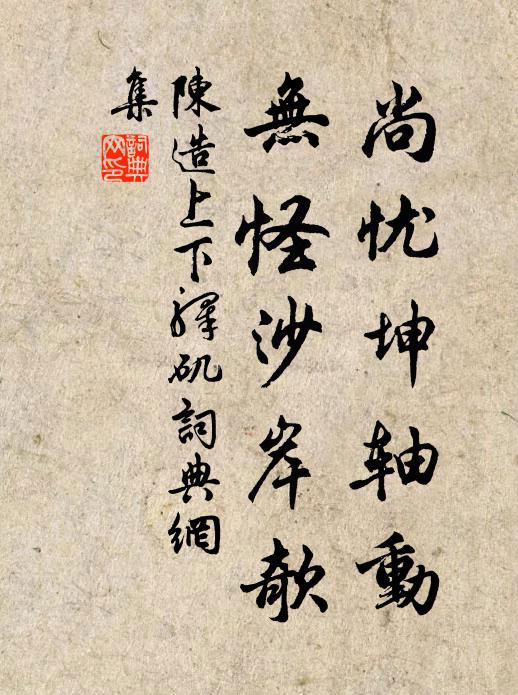 尚忧坤轴動
無怪沙岸欹
陳造上下驛矶詞典網
集
詞典网印